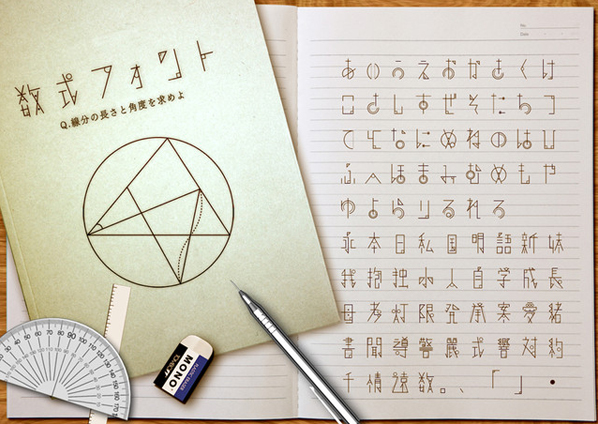 数式フォント
Q.線分の長さと角度を求めよ
No.
Date
あいうえおかきくけ
こさしすせそたちつ
てとなにぬねのはひ
ふへほまみむめもや
ゆよらりるれろ
永本日私国明語新妹
我抱独小人自学成長
母考灯限発案愛緒
書聞導警麗式響対約
千情遠数。、「」・
MONO
TOMBOW